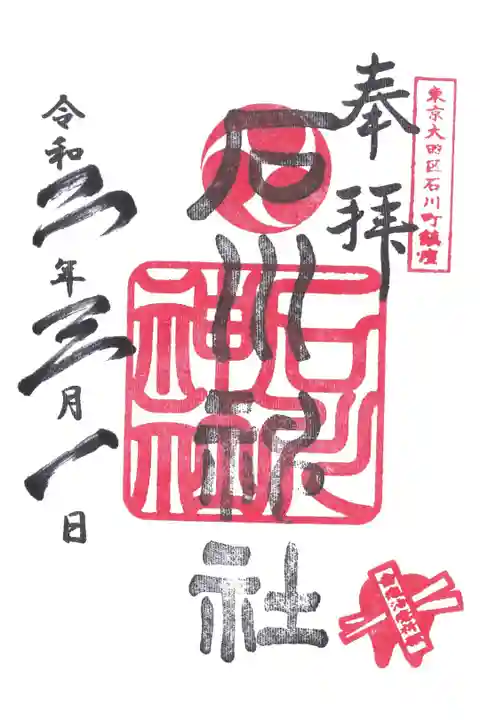 東京大田区石川町鎮座
奉拝
石川神社
石川神社
令和二年三月一日